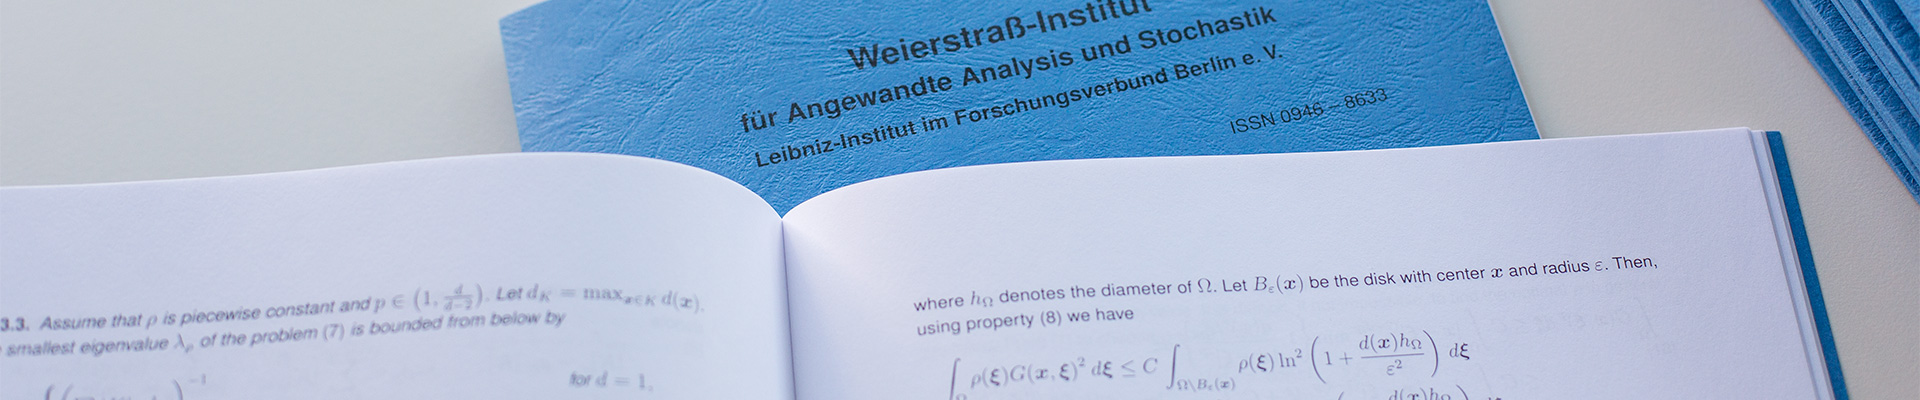 Weierstraß-Institut
für Angewandte Analysis und Stochastik
Leibniz-Institut im Forschungsverbund Berlin e. V.
ISSN 0946 – 8633
3.3. Assume that ρ is piecewise constant and p ∈ (1, d/(d−2)). Let d_K = max_{x∈K} d(x).
smallest eigenvalue λ_ρ of the problem (7) is bounded from below by
−1
for d = 1,
where h_Ω denotes the diameter of Ω. Let B_ε(x) be the disk with center x and radius ε. Then,
using property (8) we have
∫_Ω ρ(ξ)G(x, ξ)² dξ ≤ C ∫_{Ω\B_ε(x)} ρ(ξ) ln² (1 + d(x)h_Ω/ε²) dξ
d(x)h_Ω